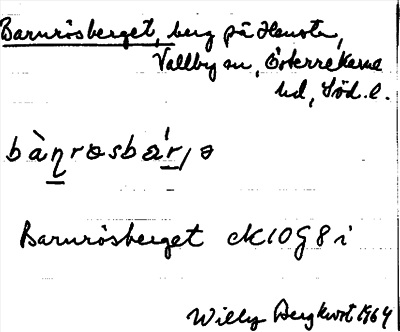 Barnrösberget, berg på Hemsta,
Vallby sn, Österrekarne
hd, Söd. l.
bàƞrəsbár,ə
Barnrösberget ek10G8i
Willy Bergkvist 1964